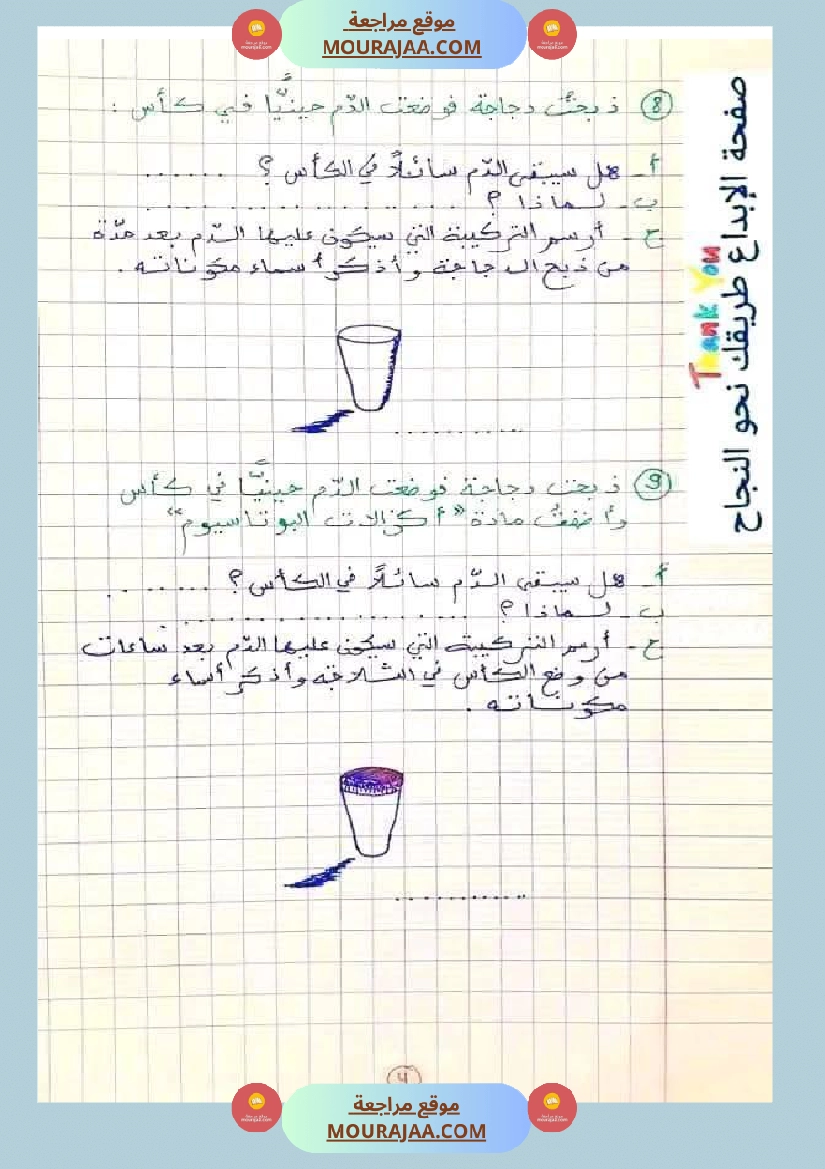 موقع مراجعة
MOURAJAA.COM
صفحة الإبداع طريقك نحو النجاح
Thank You
8 ذبحتُ دجاجة فوضعت الدّم حينيًّا في كأس :
أ - هل سيبقى الدّم سائلاً في الكأس ؟ ........
ب - لماذا ؟ ........................
ج - أرسم التركيبة التي سيكون عليها الدّم بعد مدّة
من ذبح الدجاجة وأذكر أسماء مكوّناته .
............
9 ذبحت دجاجة فوضعت الدّم حينيًّا في كأس
وأضفتُ مادة " أكزالات البوتاسيوم "
أ - هل سيبقى الدّم سائلاً في الكأس ؟ ........
ب - لماذا ؟ ........................
ج - أرسم التركيبة التي سيكون عليها الدّم بعد ساعات
من وضع الكأس في الثلاجة وأذكر أسماء
مكوّناته .
............
4
موقع مراجعة
MOURAJAA.COM